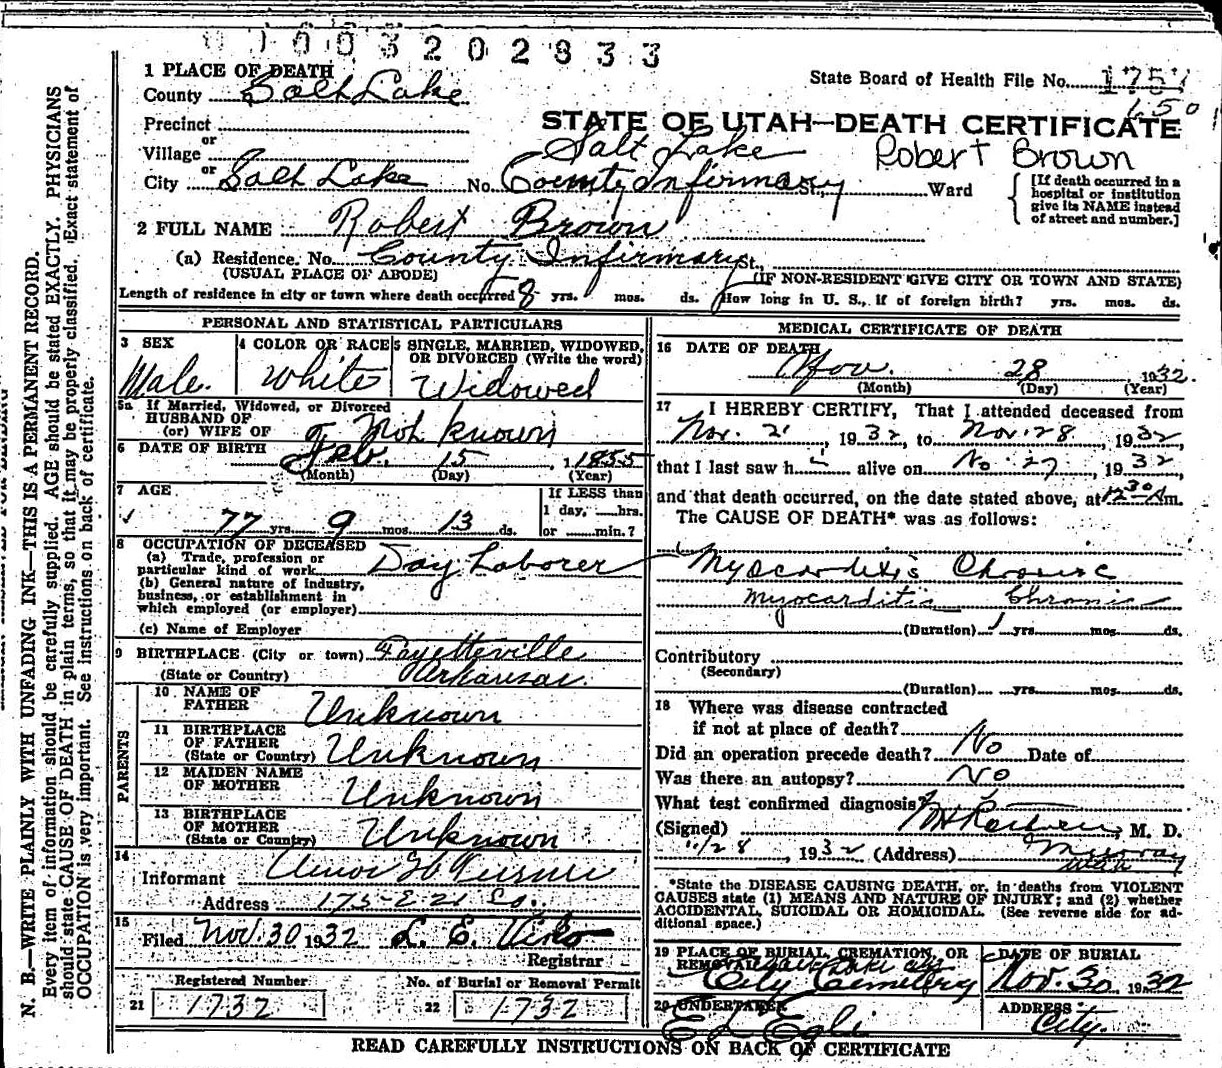 0 1 0 0 3 2 0 2 8 3 3
1 PLACE OF DEATH
County Salt Lake
State Board of Health File No. 1757
650
Precinct
STATE OF UTAH—DEATH CERTIFICATE
or
Village
Salt Lake Robert Brown
or
City Salt Lake No. County Infirmary St., Ward
[If death occurred in a
hospital or institution
give its NAME instead
of street and number.]
2 FULL NAME Robert Brown
(a) Residence. No. County Infirmary St.,
(USUAL PLACE OF ABODE) (IF NON-RESIDENT GIVE CITY OR TOWN AND STATE)
Length of residence in city or town where death occurred 8 yrs. mos. ds. How long in U. S., if of foreign birth? yrs. mos. ds.
PERSONAL AND STATISTICAL PARTICULARS
3 SEX
Male.
4 COLOR OR RACE
White
5 SINGLE, MARRIED, WIDOWED,
OR DIVORCED (Write the word)
Widowed
5a If Married, Widowed, or Divorced
HUSBAND OF
(or) WIFE OF Not known
6 DATE OF BIRTH Feb. 15, 1855
(Month) (Day) (Year)
7 AGE
77 yrs. 9 mos. 13 ds.
If LESS than
1 day, hrs.
or min.?
8 OCCUPATION OF DECEASED
(a) Trade, profession or
particular kind of work Day Laborer
(b) General nature of industry,
business, or establishment in
which employed (or employer)
(c) Name of Employer
9 BIRTHPLACE (City or town) Fayetteville
(State or Country) Arkansas.
PARENTS
10 NAME OF
FATHER Unknown
11 BIRTHPLACE
OF FATHER
(State or Country) Unknown
12 MAIDEN NAME
OF MOTHER Unknown
13 BIRTHPLACE
OF MOTHER
(State or Country) Unknown
14
Informant
Address 175-E-21 So.
15
Filed Nov. 30 1932 L. E.
Registrar
Registered Number
21 1732
No. of Burial or Removal Permit
22 1732
MEDICAL CERTIFICATE OF DEATH
16 DATE OF DEATH
Nov. 28 1932.
(Month) (Day) (Year)
17 I HEREBY CERTIFY, That I attended deceased from
Nov. 21, 1932, to Nov. 28, 1932,
that I last saw h i alive on No. 27, 1932
and that death occurred, on the date stated above, at 12 30 A m.
The CAUSE OF DEATH* was as follows:
Myocarditis Chronic
Myocarditis Chronic
(Duration) 1 yrs. mos. ds.
Contributory
(Secondary)
(Duration) yrs. mos. ds.
18 Where was disease contracted
if not at place of death?
Did an operation precede death? No Date of
Was there an autopsy? No
What test confirmed diagnosis?
(Signed) M. D.
11/28, 1932 (Address) Murray
Utah
*State the DISEASE CAUSING DEATH, or, in deaths from VIOLENT
CAUSES state (1) MEANS AND NATURE OF INJURY; and (2) whether
ACCIDENTAL, SUICIDAL OR HOMICIDAL. (See reverse side for ad-
ditional space.)
19 PLACE OF BURIAL, CREMATION, OR
REMOVAL Salt Lake City
City Cemetery
DATE OF BURIAL
Nov. 30 1932
20 UNDERTAKER
E L Egli
ADDRESS
City.
READ CAREFULLY INSTRUCTIONS ON BACK OF CERTIFICATE
N. B.—WRITE PLAINLY WITH UNFADING INK—THIS IS A PERMANENT RECORD.
Every item of information should be carefully supplied. AGE should be stated EXACTLY. PHYSICIANS
should state CAUSE OF DEATH in plain terms, so that it may be properly classified. Exact statement of
OCCUPATION is very important. See instructions on back of certificate.